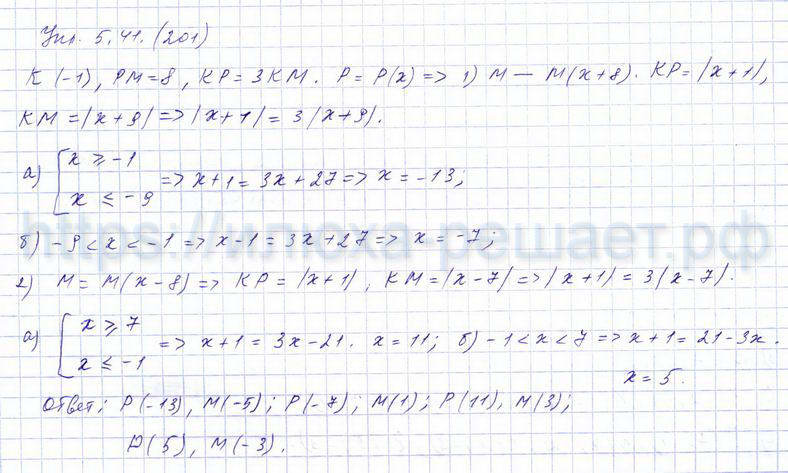 Упр. 5.41. (201)
K (-1), PM = 8, KP = 3KM. P = P(x) => 1) M — M(x+8). KP = |x+1|,
KM = |x+9| => |x+1| = 3|x+9|.
а) [ x ≥ -1
x ≤ -9 => x+1 = 3x+27 => x = -13;
б) -9 < x < -1 => x-1 = 3x+27 => x = -7;
2) M = M(x-8) => KP = |x+1|, KM = |x-7| => |x+1| = 3|x-7|.
а) [ x ≥ 7
x ≤ -1 => x+1 = 3x-21. x = 11; б) -1 < x < 7 => x+1 = 21-3x.
x = 5.
Ответ: P(-13), M(-5); P(-7); M(1); P(11), M(3);
P(5), M(-3).